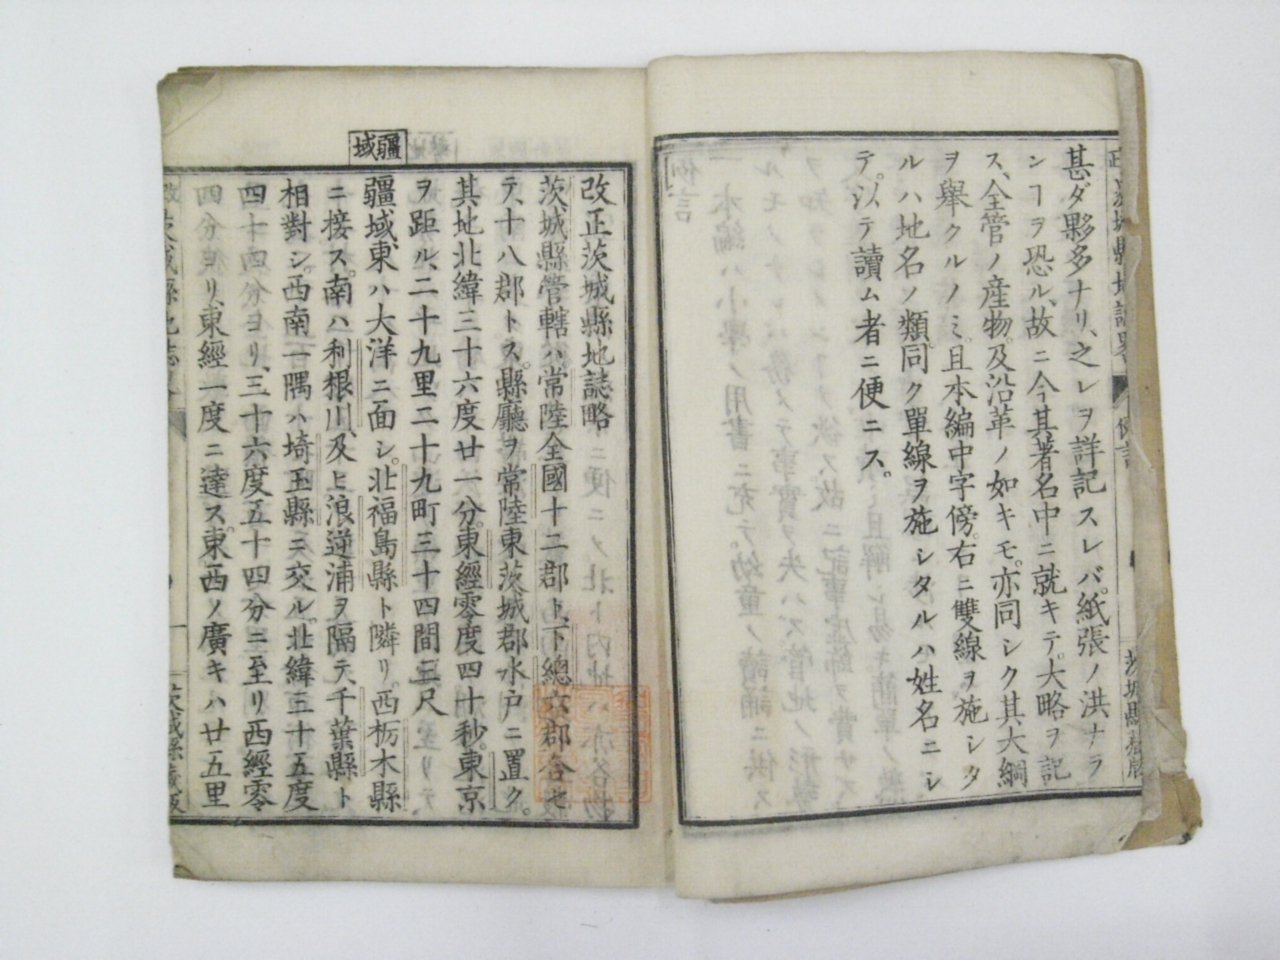 甚ダ夥多ナリ、之レヲ詳記スレバ紙張ノ洪ナラ
ンコヲ恐ル、故ニ今其著名中ニ就キテ大略ヲ記
ス、全管ノ産物及沿革ノ如キモ亦同シク其大綱
ヲ舉クルノミ、且本編中字傍右ニ雙線ヲ施シタ
ルハ地名ノ類、同ク單線ヲ施シタルハ姓名ニシ
テ以テ讀ム者ニ便ニス。
疆域
改正茨城縣地誌略
茨城縣管轄ハ常陸全國十二郡ト、下總六郡合セ
テ、十八郡トス。縣廳ヲ常陸東茨城郡水戸ニ置ク。
其地北緯三十六度廿一分。東經零度四十秒。東京
ヲ距ル、二十九里二十九町三十四間三尺
疆域、東ハ大洋ニ面シ。北福島縣ト隣リ。西栃木縣
ニ接ス。南ハ利根川、及ヒ浪逆浦ヲ隔テ千葉縣ト
相對シ。西南一隅ハ埼玉縣ニ交ル。北緯三十五度
四十四分ヨリ、三十六度五十四分ニ至リ西經零
四分 リ、東經一度ニ達ス。東西ノ廣キハ廿五里
茨城縣藏版